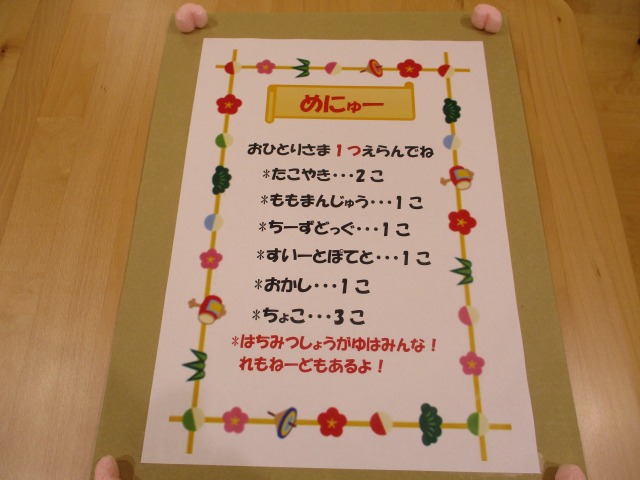 めにゅー
おひとりさま1つえらんでね
*たこやき・・・2こ
*ももまんじゅう・・・1こ
*ちーずどっぐ・・・1こ
*すいーとぽてと・・・1こ
*おかし・・・1こ
*ちょこ・・・3こ
*はちみつしょうがゆはみんな!
れもねーどもあるよ!